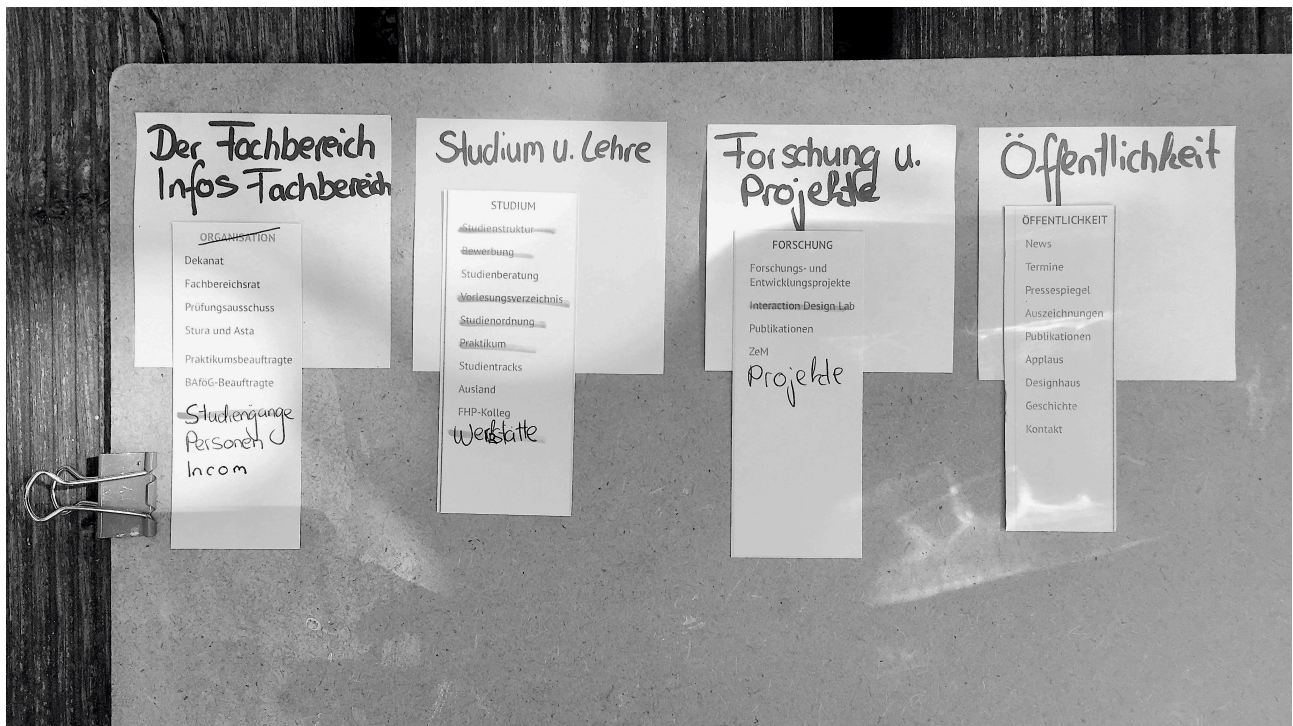 Der Fachbereich
Infos Fachbereich
ORGANISATION
Dekanat
Fachbereichsrat
Prüfungsausschuss
Stura und Asta
Praktikumsbeauftragte
BAföG-Beauftragte
Studiengänge
Personen
Incom
Studium u. Lehre
STUDIUM
Studienstruktur
Bewerbung
Studienberatung
Vorlesungsverzeichnis
Studienordnung
Praktikum
Studientracks
Ausland
FHP-Kolleg
Werkstätte
Forschung u.
Projekte
FORSCHUNG
Forschungs- und
Entwicklungsprojekte
Interaction Design Lab
Publikationen
ZeM
Projekte
Öffentlichkeit
ÖFFENTLICHKEIT
News
Termine
Pressespiegel
Auszeichnungen
Publikationen
Applaus
Designhaus
Geschichte
Kontakt